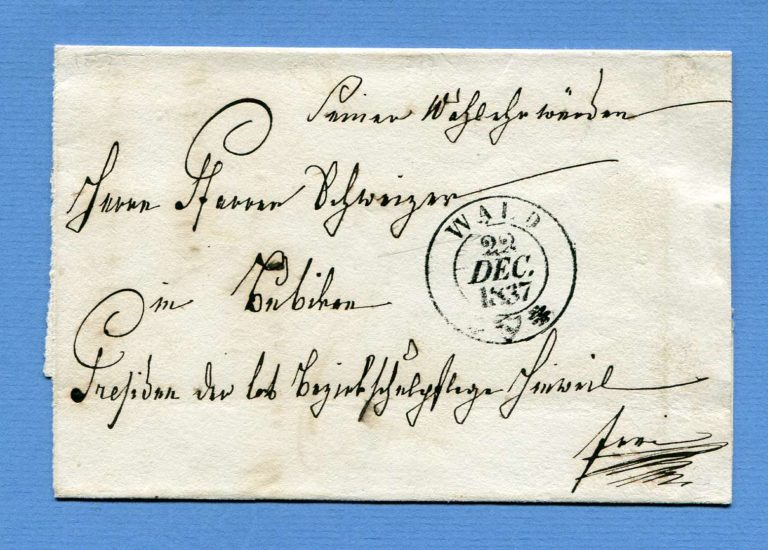 Seiner Wohlehrwürden
Herrn Pfarrer Schweizer
in Bubikon
Presiden der lob Bezirksschulpflege Hinweil
frei
WALD
22
DEC.
1837